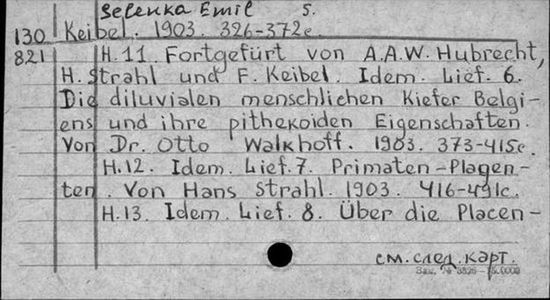 Selenka Emil 5.
130 Keibel. 1903. 326-372c.
821 H.11. Fortgefürt von A.A.W. Hubrecht,
H. Strahl und F. Keibel. Idem. Lief. 6.
Die diluvialen menschlichen Kiefer Belgi-
ens und ihre pithekoiden Eigenschaften.
Von Dr. Otto Walkhoff. 1903. 373-415c.
H.12. Idem. Lief. 7. Primaten-Plagen-
ten. Von Hans Strahl. 1903. 416-491c.
H.13. Idem. Lief. 8. Über die Placen-
см. след. карт.